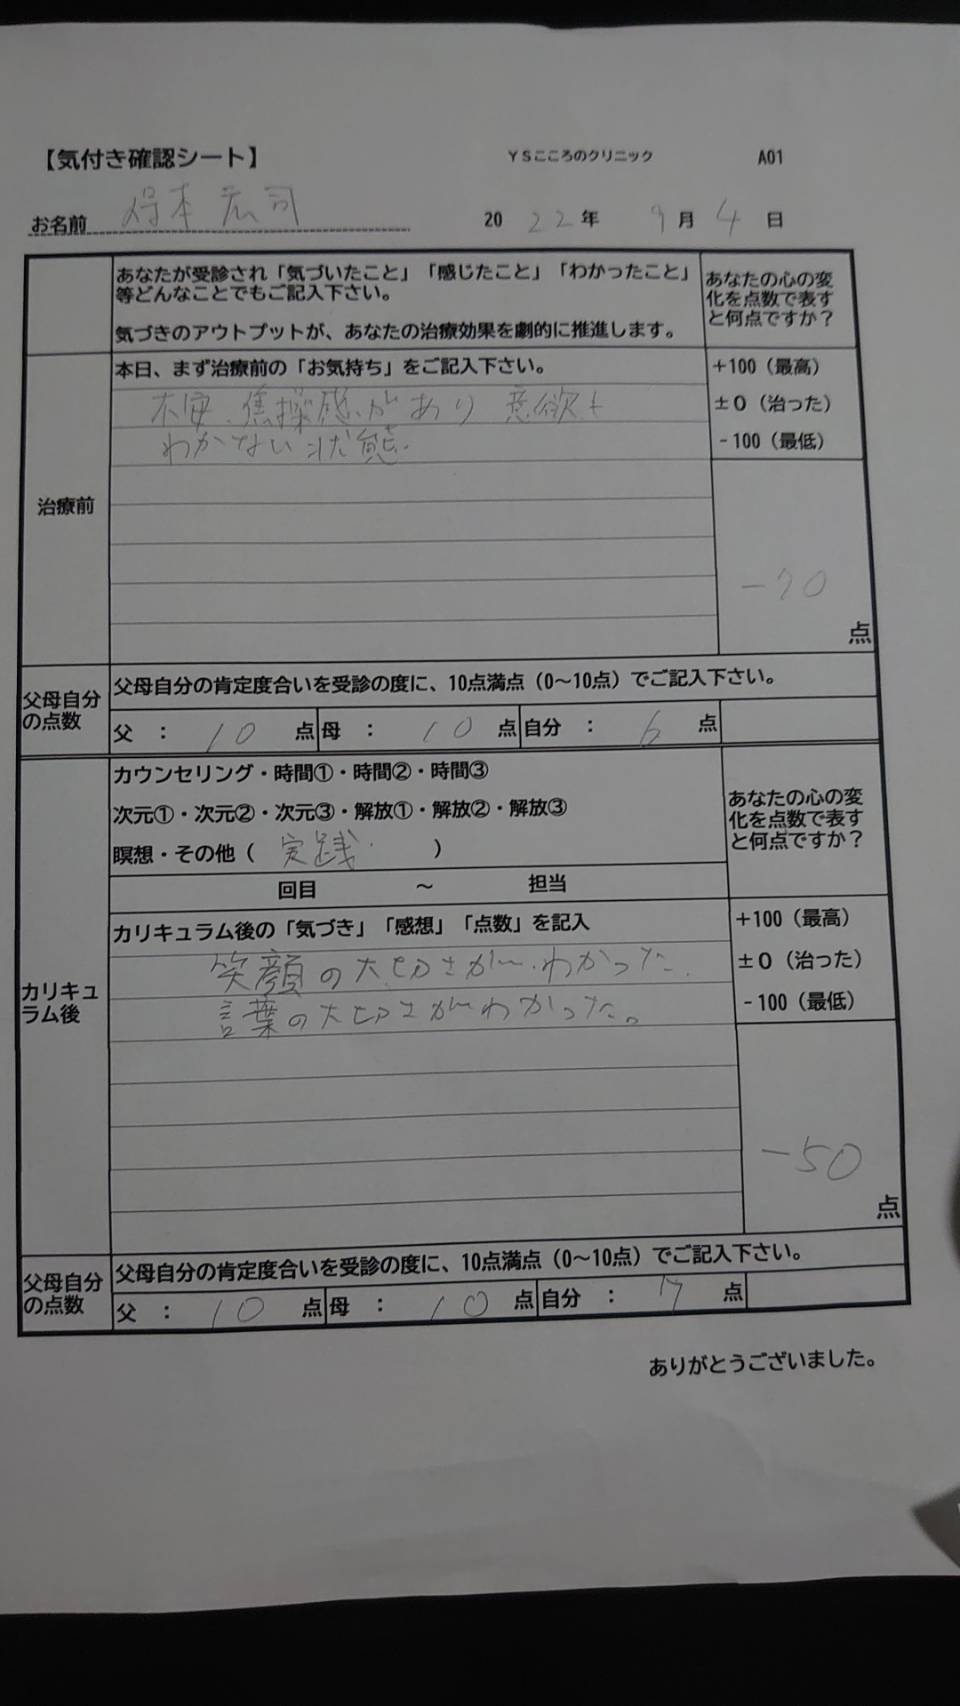 【気付き確認シート】 YSこころのクリニック A01
お名前 本 広司 2022年 9月 4日
あなたが受診され「気づいたこと」「感じたこと」「わかったこと」
等どんなことでもご記入下さい。
気づきのアウトプットが、あなたの治療効果を劇的に推進します。
あなたの心の変
化を点数で表す
と何点ですか？
治療前
本日、まず治療前の「お気持ち」をご記入下さい。
不安、焦操感があり 意欲も
わかない状態.
+100（最高）
±0（治った）
-100（最低）
-70
点
父母自分
の点数
父母自分の肯定度合いを受診の度に、10点満点（0～10点）でご記入下さい。
父 ： 10 点 母 ： 10 点 自分 ： 6 点
カリキュ
ラム後
カウンセリング・時間①・時間②・時間③
次元①・次元②・次元③・解放①・解放②・解放③
瞑想・その他（ 実践. ）
回目 ～ 担当
あなたの心の変
化を点数で表す
と何点ですか？
カリキュラム後の「気づき」「感想」「点数」を記入
笑顔の大切さが わかった.
言葉の大切さがわかった。
+100（最高）
±0（治った）
-100（最低）
-50
点
父母自分
の点数
父母自分の肯定度合いを受診の度に、10点満点（0～10点）でご記入下さい。
父 ： 10 点 母 ： 10 点 自分 ： 7 点
ありがとうございました。